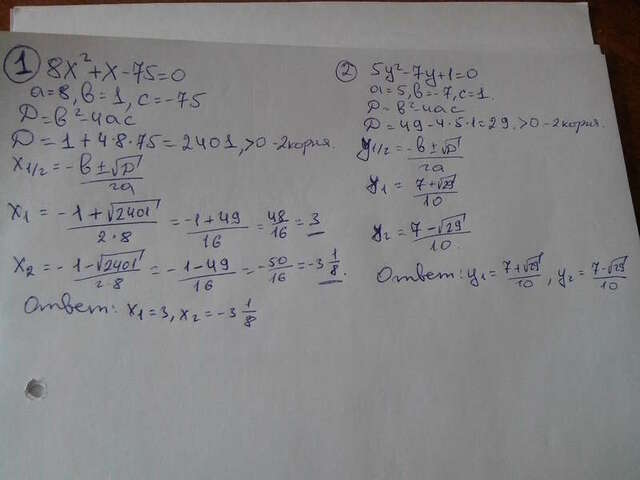 ① 8x²+x-75=0
a=8, b=1, c=-75
D=b²-4ac
D=1+4·8·75=2401, >0 - 2 корня.
x1/2=-b±√D/2a
x1=-1+√2401/2·8=-1+49/16=48/16=3
x2=-1-√2401/2·8=-1-49/16=-50/16=-3 1/8.
Ответ: x1=3, x2=-3 1/8
② 5y²-7y+1=0
a=5, b=-7, c=1.
D=b²-4ac
D=49-4·5·1=29, >0 - 2 корня.
y1/2=-b±√D/2a
y1=7+√29/10
y2=7-√29/10.
Ответ: y1=7+√29/10, y2=7-√29/10